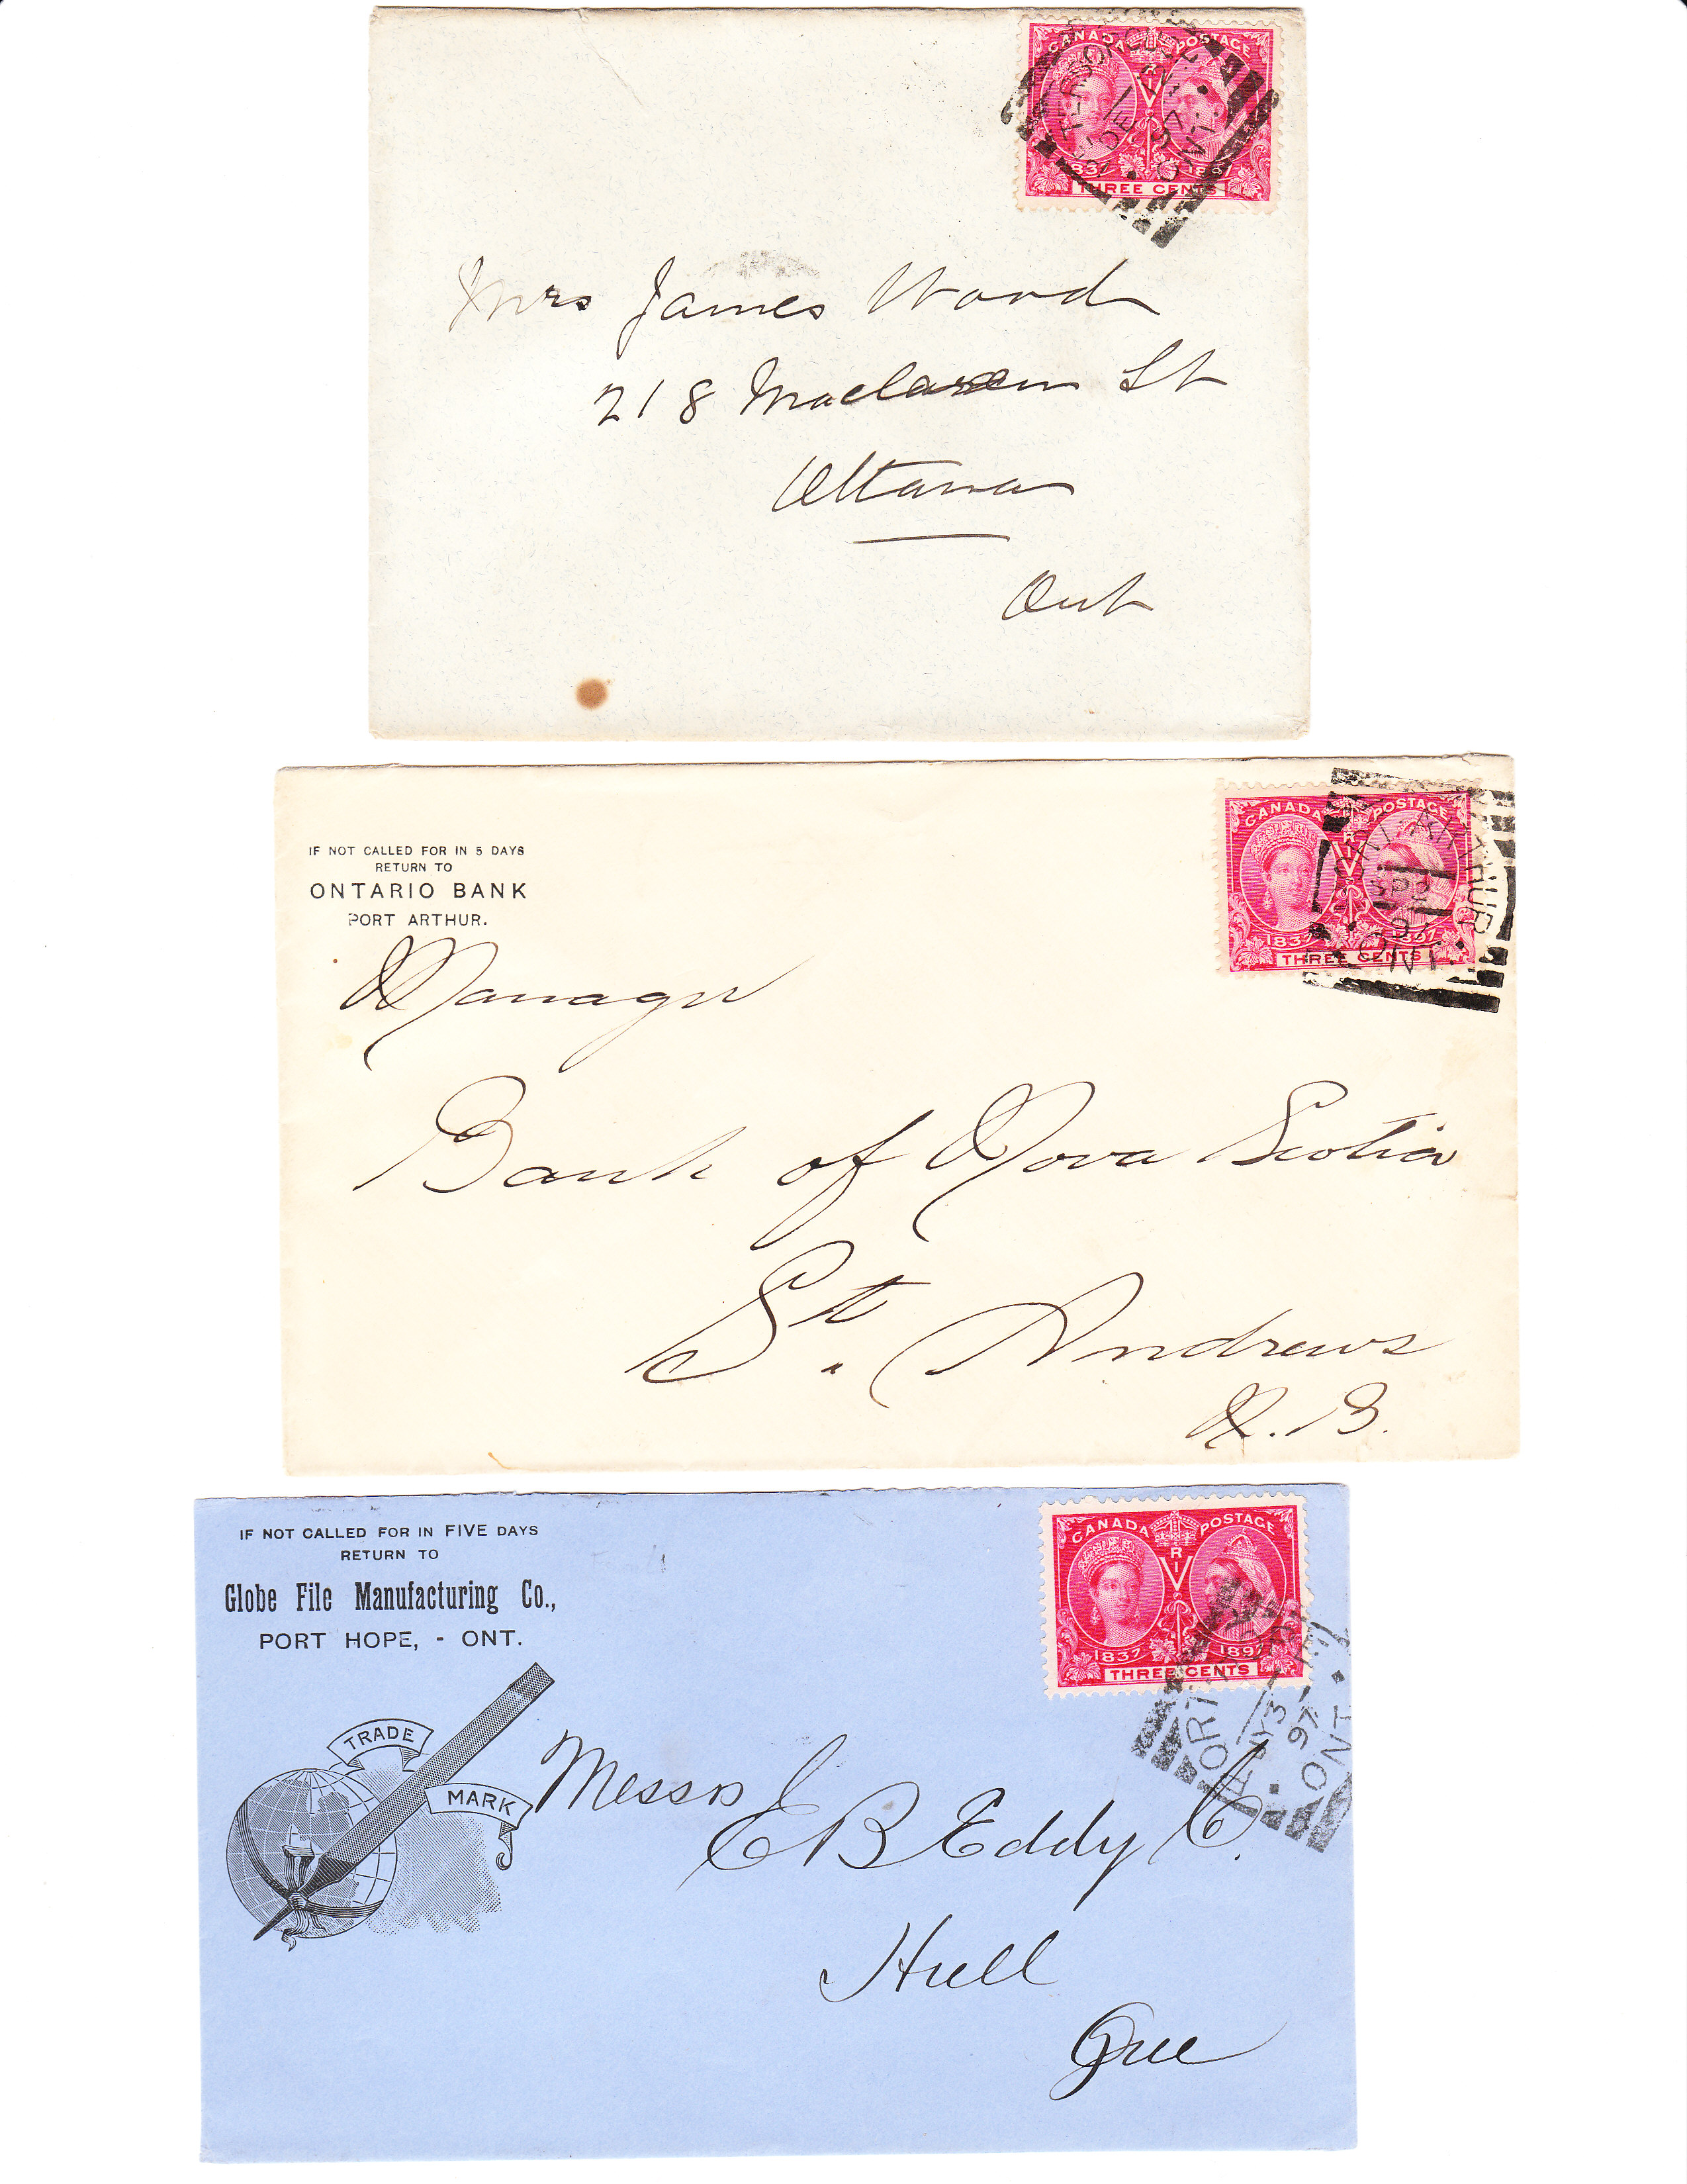 CANADA POSTAGE
V R I
DE 12
97
ONT.
THREE CENTS
Mrs James Wood
218 Maclaren St
Ottawa
Ont
CANADA POSTAGE
R I V
1837 1897
THREE CENTS
PORT ARTHUR
SP 2
97
ONT.
IF NOT CALLED FOR IN 5 DAYS
RETURN TO
ONTARIO BANK
PORT ARTHUR.
Manager
Bank of Nova Scotia
St. Andrews
N.B.
IF NOT CALLED FOR IN FIVE DAYS
RETURN TO
Globe File Manufacturing Co.,
PORT HOPE, - ONT.
TRADE
MARK
CANADA POSTAGE
V R I
1837 1897
THREE CENTS
97
ONT
Messrs
E B Eddy Co.
Hull
Que